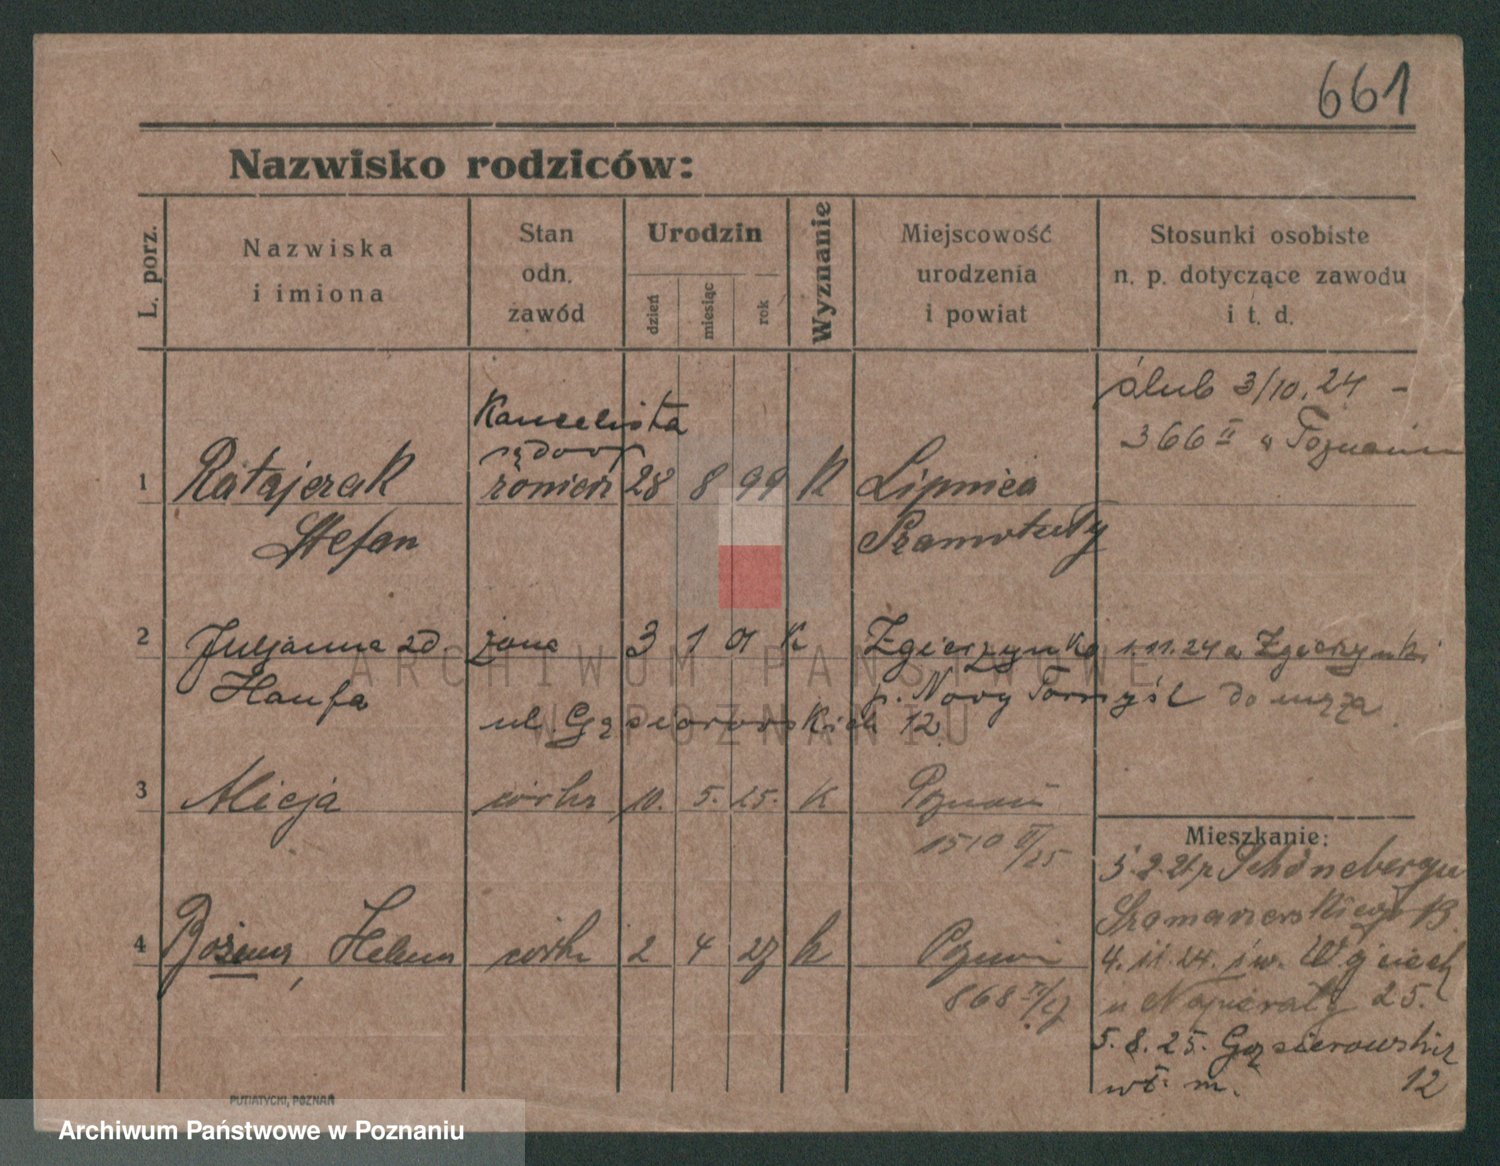 661
Nazwisko rodziców:
L. porz.
Nazwiska
i imiona
Stan
odn.
zawód
Urodzin
dzień
miesiąc
rok
Wyznanie
Miejscowość
urodzenia
i powiat
Stosunki osobiste
n. p. dotyczące zawodu
i t. d.
1
Ratajczak
Stefan
Kancelista
sądowy
28
8
99
K
Lipnica
Szamotuły
ślub 3/10.24 –
366 II w Poznaniu
2
Juljanna zd.
Haufa
żona
3
1
01
K
Zgierzynka
p. Nowy Tomyśl
1.11.24 z Zgierzynki
do męża
ul Gąsiorowskich 12
3
Alicja
córka
10.
5.
25.
K
Poznań
1510 II/25
4
Bożena, Helena
córka
2
4
27
K
Poznań
868 II/27
Mieszkanie:
Schönebergu
Szamarzewskiego
4.11.24. św. Wojciech
u Napierały 25.
5.8.25. Gąsiorowskich
wł. m. 12
PUTIATYCKI, POZNAŃ
ARCHIWUM PAŃSTWOWE
W POZNANIU
Archiwum Państwowe w Poznaniu